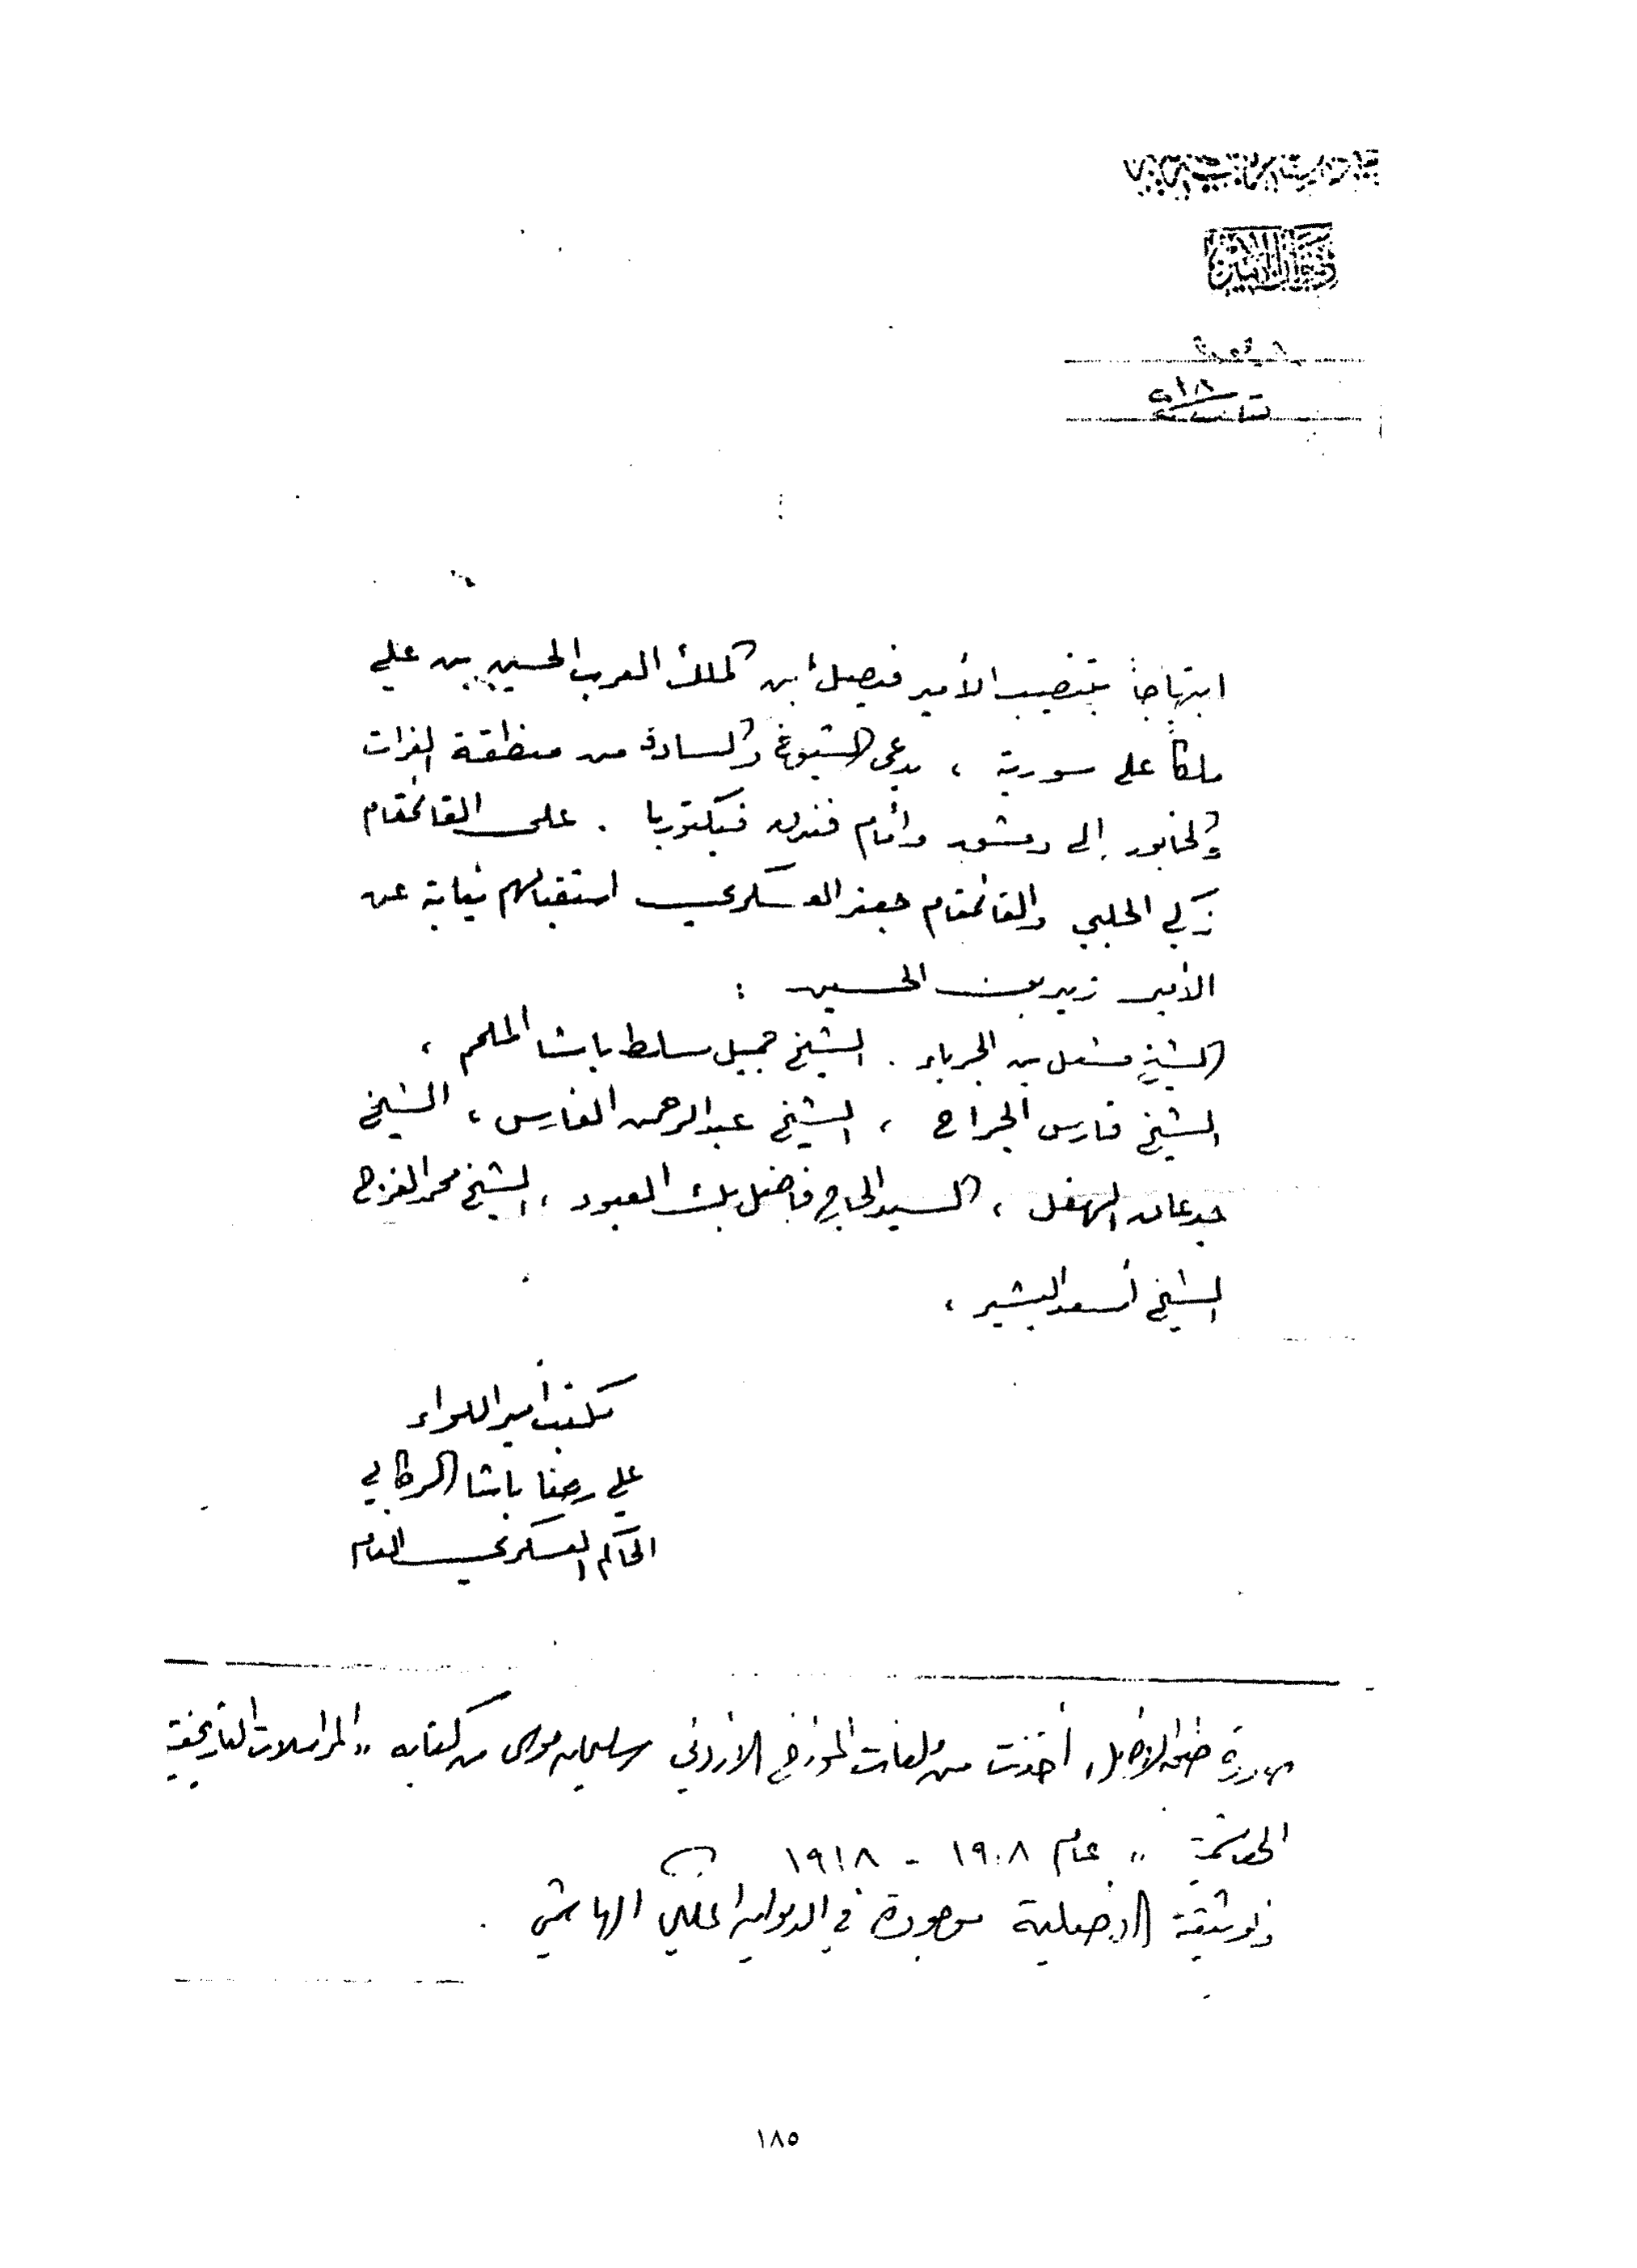 ابتهاجاً بتنصيب الأمير فيصل أبن الملك العرب الحسين بن علي
ملكاً على سورية ، يدعى الشيوخ والسادة من منطقة الفرات
والخابور إلى دمشق وأمام فندق فيكتوريا . على القائمقام
زكي الحلبي والقائمقام جعفر العسكري استقبالهم نيابة عن
الأمير زيد بن الحسين :
الشيخ مشعل بن الجرباء . الشيخ جميل سلط باشا الملحم ،
الشيخ فارس الجراح ، الشيخ عبدالرحمن الفارس ، الشيخ
جدعان الهفل ، السيد الحاج فاضل بك العبود ، الشيخ محمد الفرج
الشيخ أسعد البشير ،
مكتب أمير اللواء
علي رضا باشا الركابي
الحاكم العسكري العام
صورة الأصل ، أخذت من مؤلفات المؤرخ الأردني سليمان موسى من كتابه " المراسلات التاريخية
الهاشمية " عام ١٩٠٨ - ١٩١٨
والوثيقة الأصلية موجودة في الديوان الملكي الهاشمي .
١٨٥